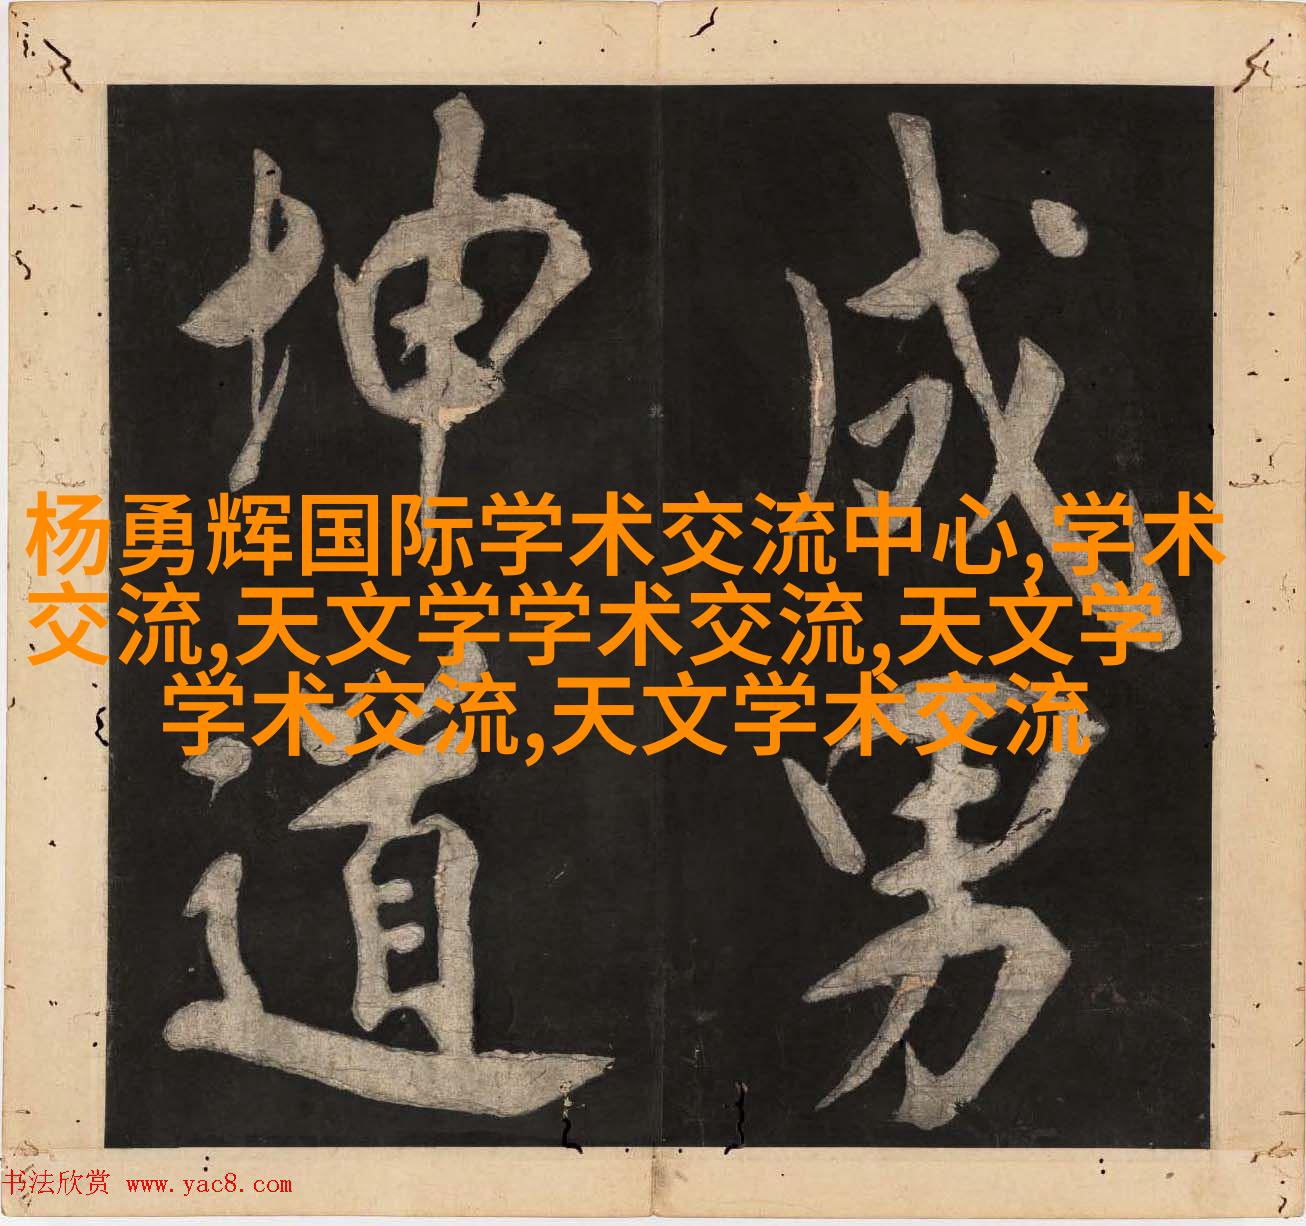 成男
坤道
杨勇辉国际学术交流中心,学术
交流,天文学学术交流,天文学
学术交流,天文学术交流
书法欣赏 www.yac8.com